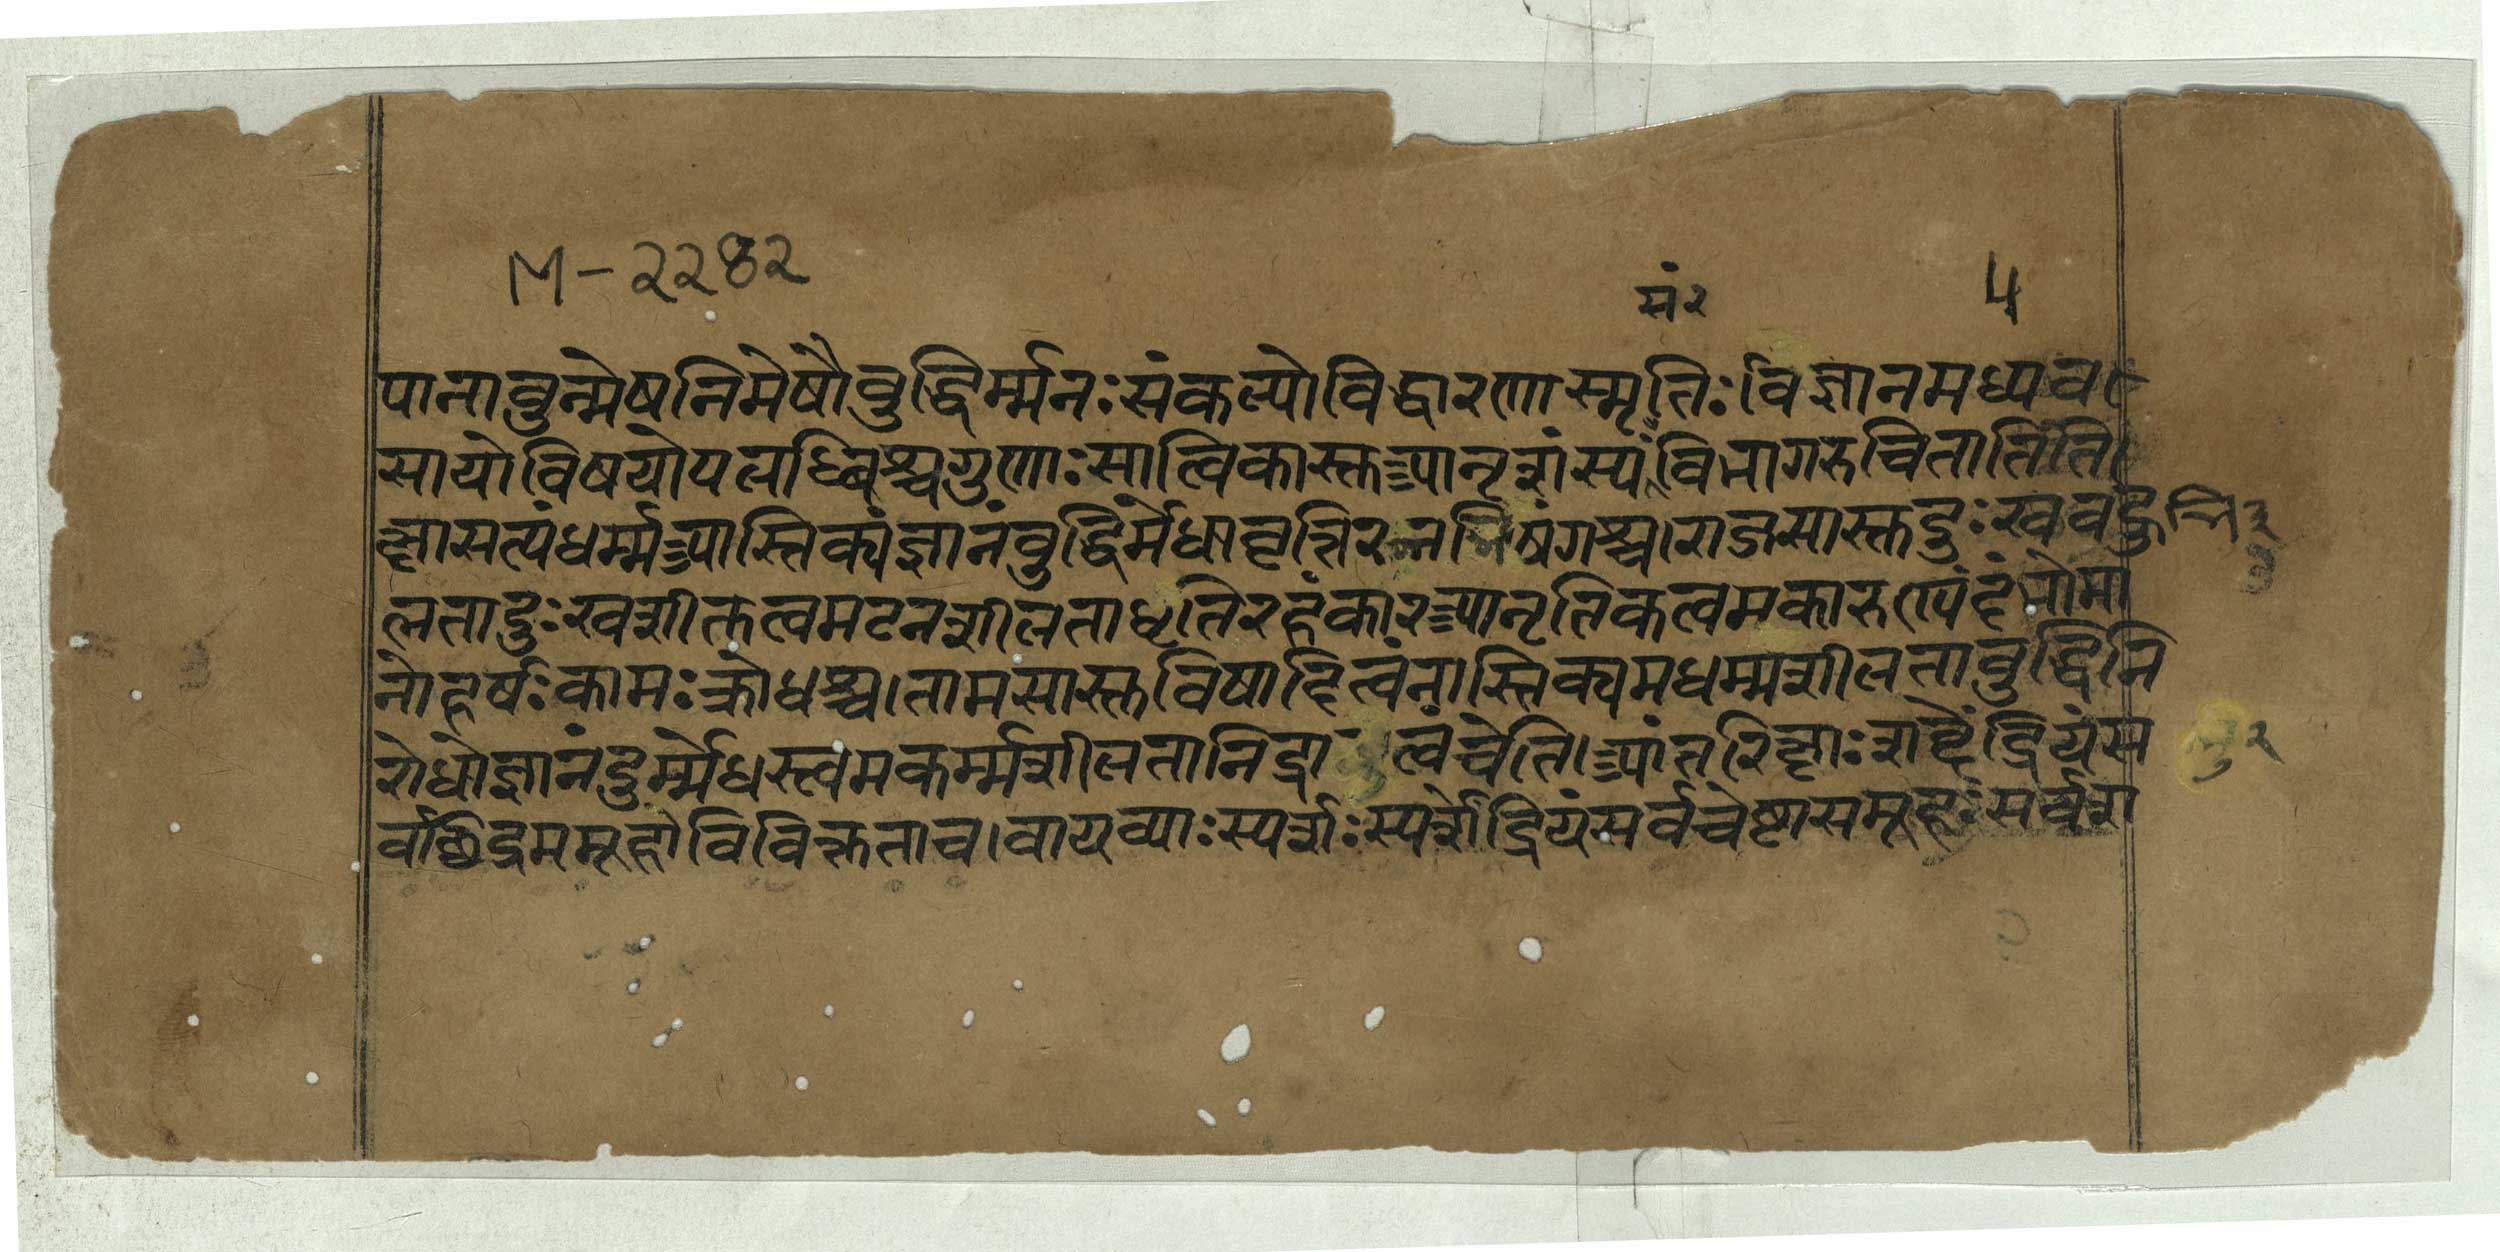 M-२२४२
मं२
५
पानावुन्मेषनिमेषौवुद्धिर्म्मनःसंकल्पोविद्वारणास्मृतिःविज्ञानमध्यव
सायोविषयोपलब्धिश्चगुणाःसात्विकास्तआनृशंस्यंविभागरुचितातिति
क्षासत्यंधर्म्मआस्तिक्यंज्ञानंवुद्धिर्मेधाधृतिरनभिषंगश्च।राजसास्तदुःखवहु
लतादुःखशीलत्वमटनशीलताधृतिरहंकारआनृतिकत्वमकारुण्यंदंभोमा
नोहर्षःकामःक्रोधश्च।तामसास्तविषादित्वंनास्तिक्यमधर्म्मशीलतावुद्धिनि
रोधोज्ञानंदुर्म्मेधस्त्वमकर्म्मशीलतानिद्रालुत्वंचेति।आंतरिक्षाःशब्देंद्रियंस
लु२
र्वछिद्रसमूहोविविक्तताच।वायव्याःस्पर्शःस्पर्शेंद्रियंसर्वचेष्टासमूहःसर्वश